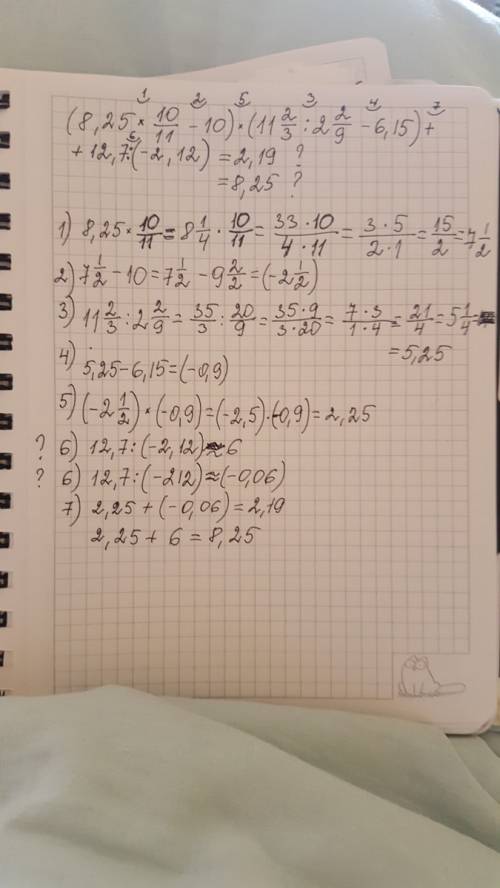 1 2 5 3 4 7
(8,25 × 10/11 − 10) × (11 2/3 : 2 2/9 − 6,15) +
6
+ 12,7 : (−2,12) = 2,19 ?
= 8,25 ?
1) 8,25 × 10/11 = 8 1/4 · 10/11 = 33·10/4·11 = 3·5/2·1 = 15/2 = 7 1/2
2) 7 1/2 − 10 = 7 1/2 − 9 2/2 = (−2 1/2)
3) 11 2/3 : 2 2/9 = 35/3 : 20/9 = 35·9/3·20 = 7·3/1·4 = 21/4 = 5 1/4 =
= 5,25
4) 5,25 − 6,15 = (−0,9)
5) (−2 1/2) × (−0,9) = (−2,5)·(−0,9) = 2,25
? 6) 12,7 : (−2,12) ≈ 6
? 6) 12,7 : (−212) ≈ (−0,06)
7) 2,25 + (−0,06) = 2,19
2,25 + 6 = 8,25